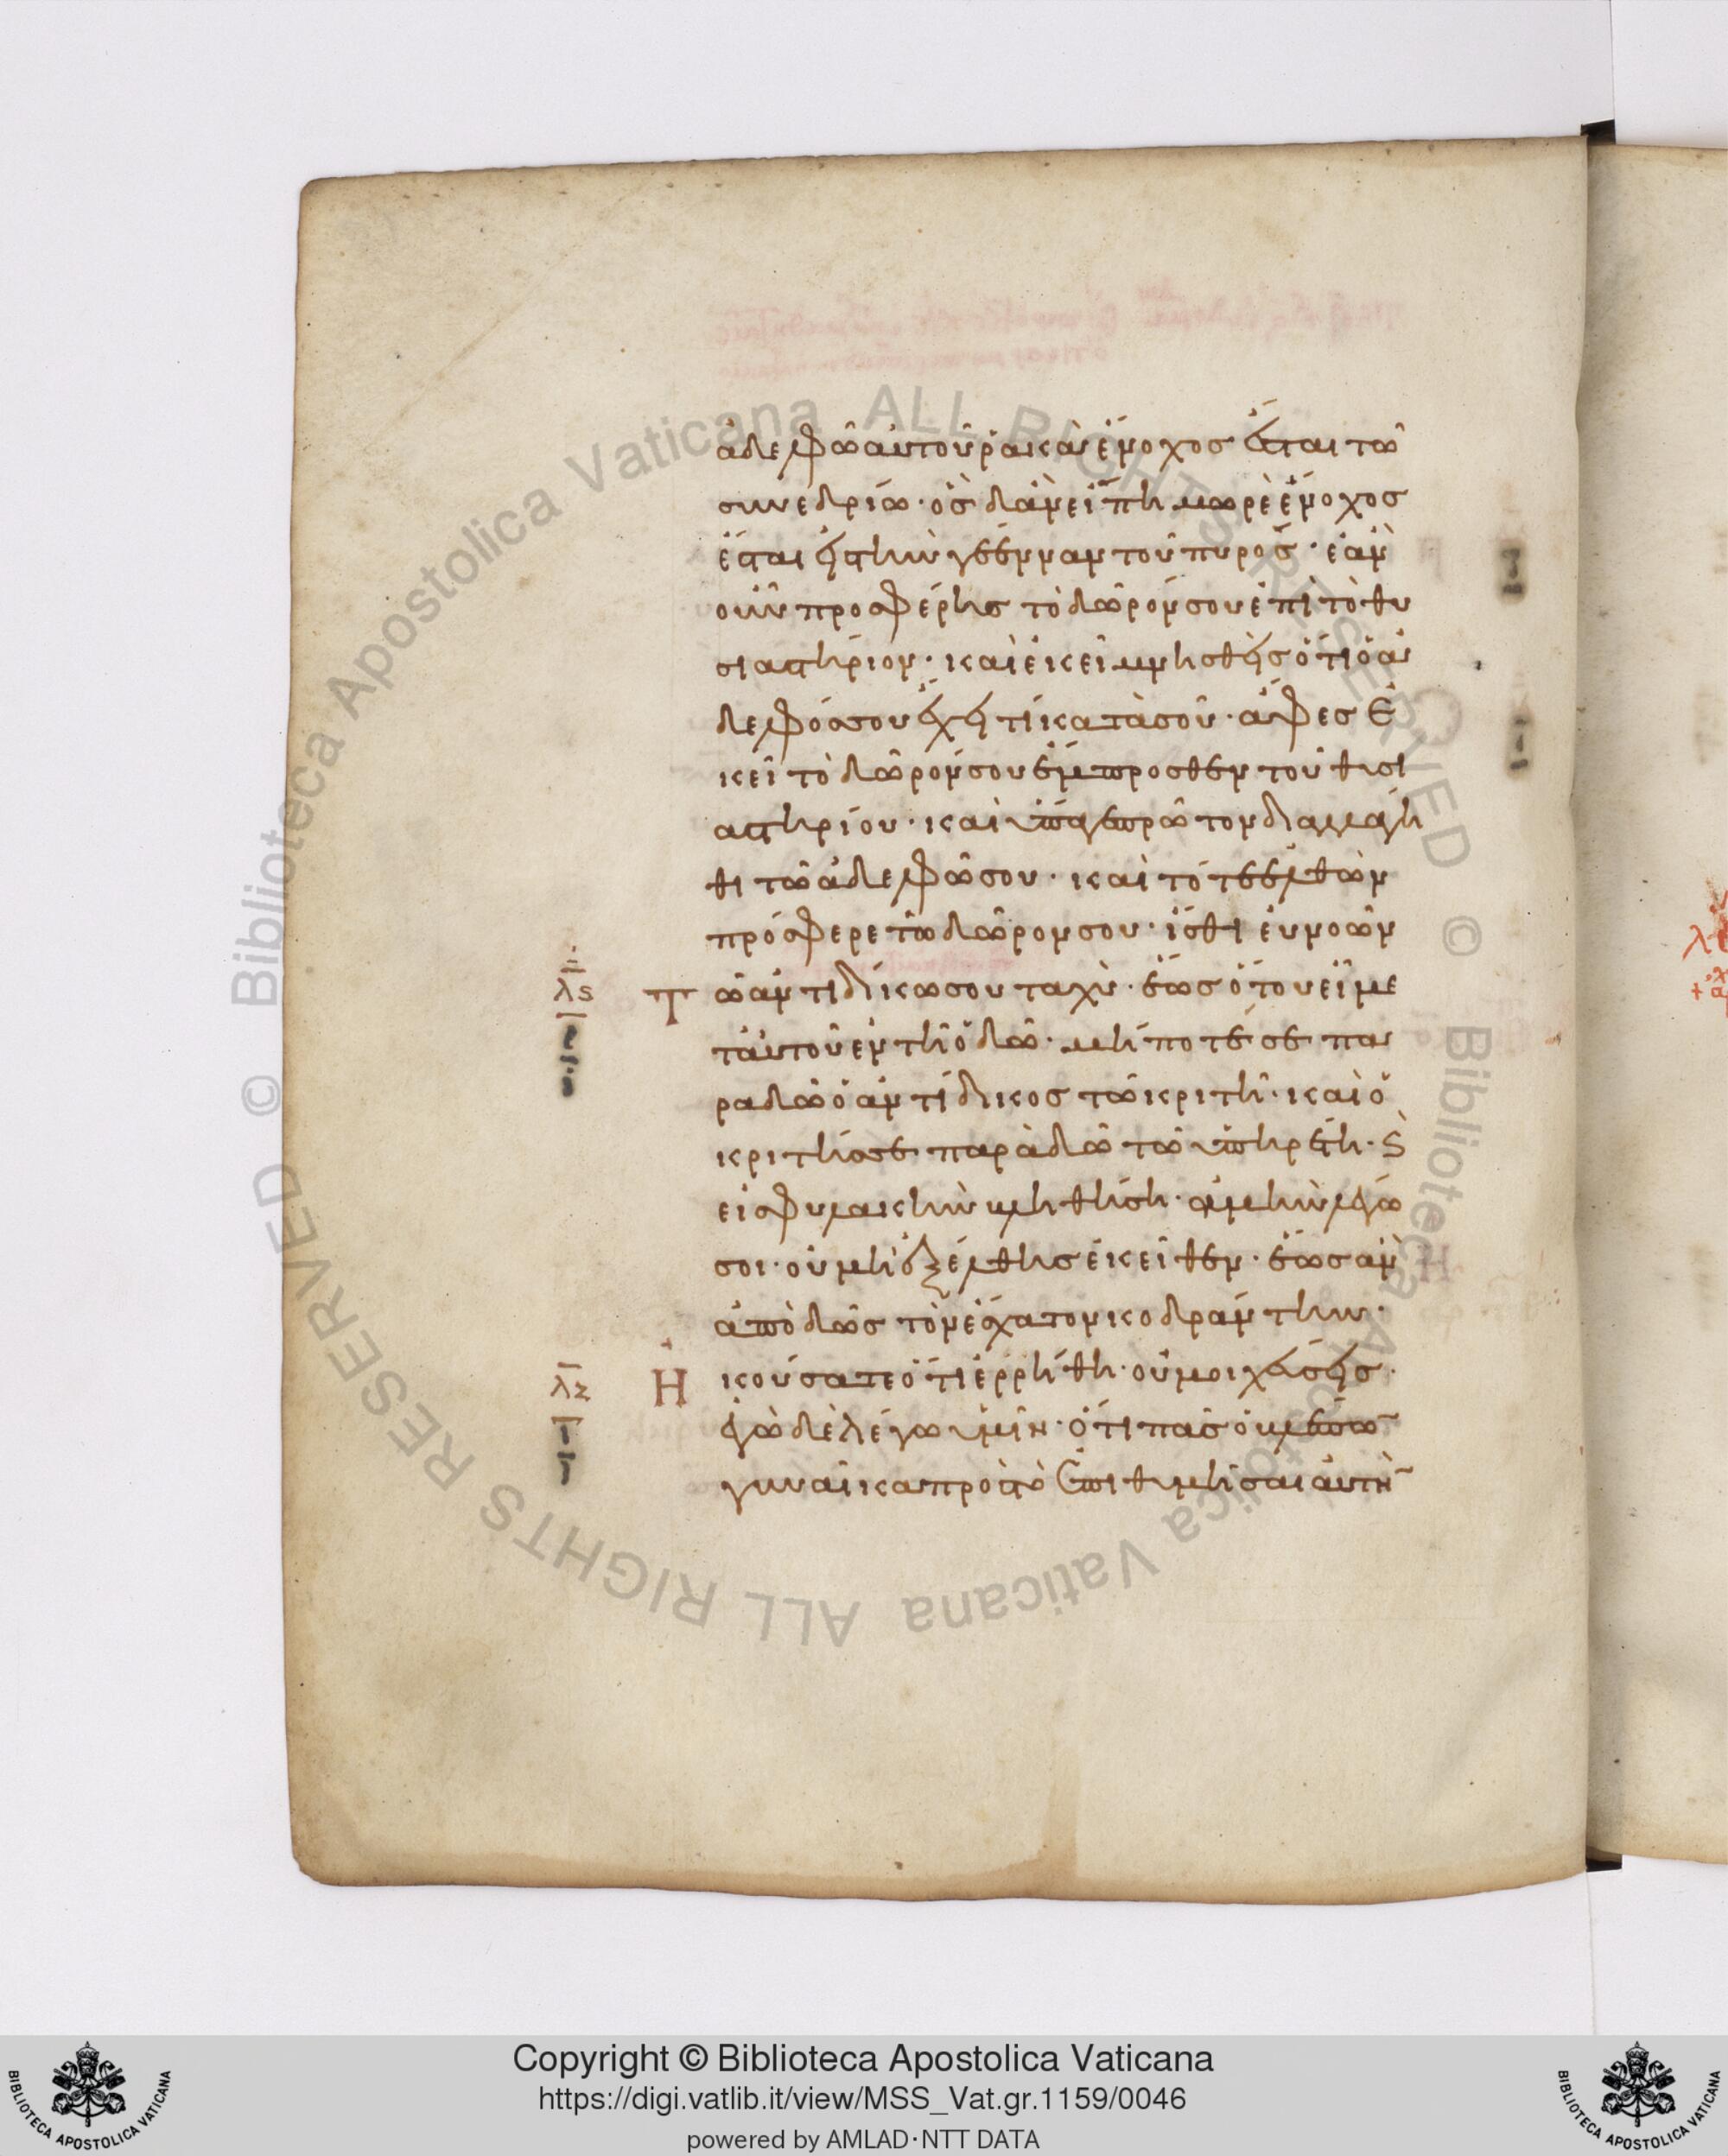 ἀδελφῶ αὐτοῦ ῥακὰ ἔνοχος ἔσται τῶ
συνεδρίω· ὃς δ' ἂν εἴπη μωρὲ ἔνοχος
ἔσται εἰς τὴν γέενναν τοῦ πυρός· ἐὰν
οὖν προσφέρης τὸ δῶρόν σου ἐπὶ τὸ θυ
σιαστήριον· καὶ ἐκεῖ μνησθῆς ὅτι ὁ ἀ
δελφός σου ἔχει τί κατὰ σοῦ· ἄφες ἐ
κεῖ τὸ δῶρόν σου ἔμπροσθεν τοῦ θυσι
αστηρίου· καὶ ὕπαγε πρῶτον διαλλάγη
θι τῶ ἀδελφῶ σου· καὶ τότε ἐλθὼν
πρόσφερε τὸ δῶρον σου· ἴσθι εὐνοῶν
λς Τ ῶ ἀντιδίκω σου ταχὺ· ἕως ὅτου εἶ με
τ' αὐτοῦ ἐν τῆ ὁδῶ· μήποτέ σε πα
ραδῶ ὁ ἀντίδικος τῶ κριτῆ· καὶ ὁ
κριτής σε παραδῶ τῶ ὑπηρέτη· ϗ
εἰς φυλακὴν βληθήση· ἀμὴν λέγω
σοι· οὐ μὴ ἐξέλθης ἐκεῖθεν· ἕως ἂν
ἀποδῶς τὸν ἔσχατον κοδράντην·
λζ Η κούσατε ὅτι ἐρρήθη· οὐ μοιχεύσεις·
ἐγὼ δὲ λέγω ὑμῖν· ὅτι πᾶς ὁ βλέπων
γυναῖκα πρὸς τὸ ἐπιθυμῆσαι αὐτὴν
Copyright © Biblioteca Apostolica Vaticana
https://digi.vatlib.it/view/MSS_Vat.gr.1159/0046
powered by AMLAD·NTT DATA